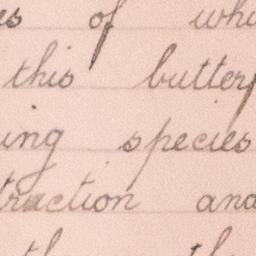 es of whi
this butterf
ing species
traction and